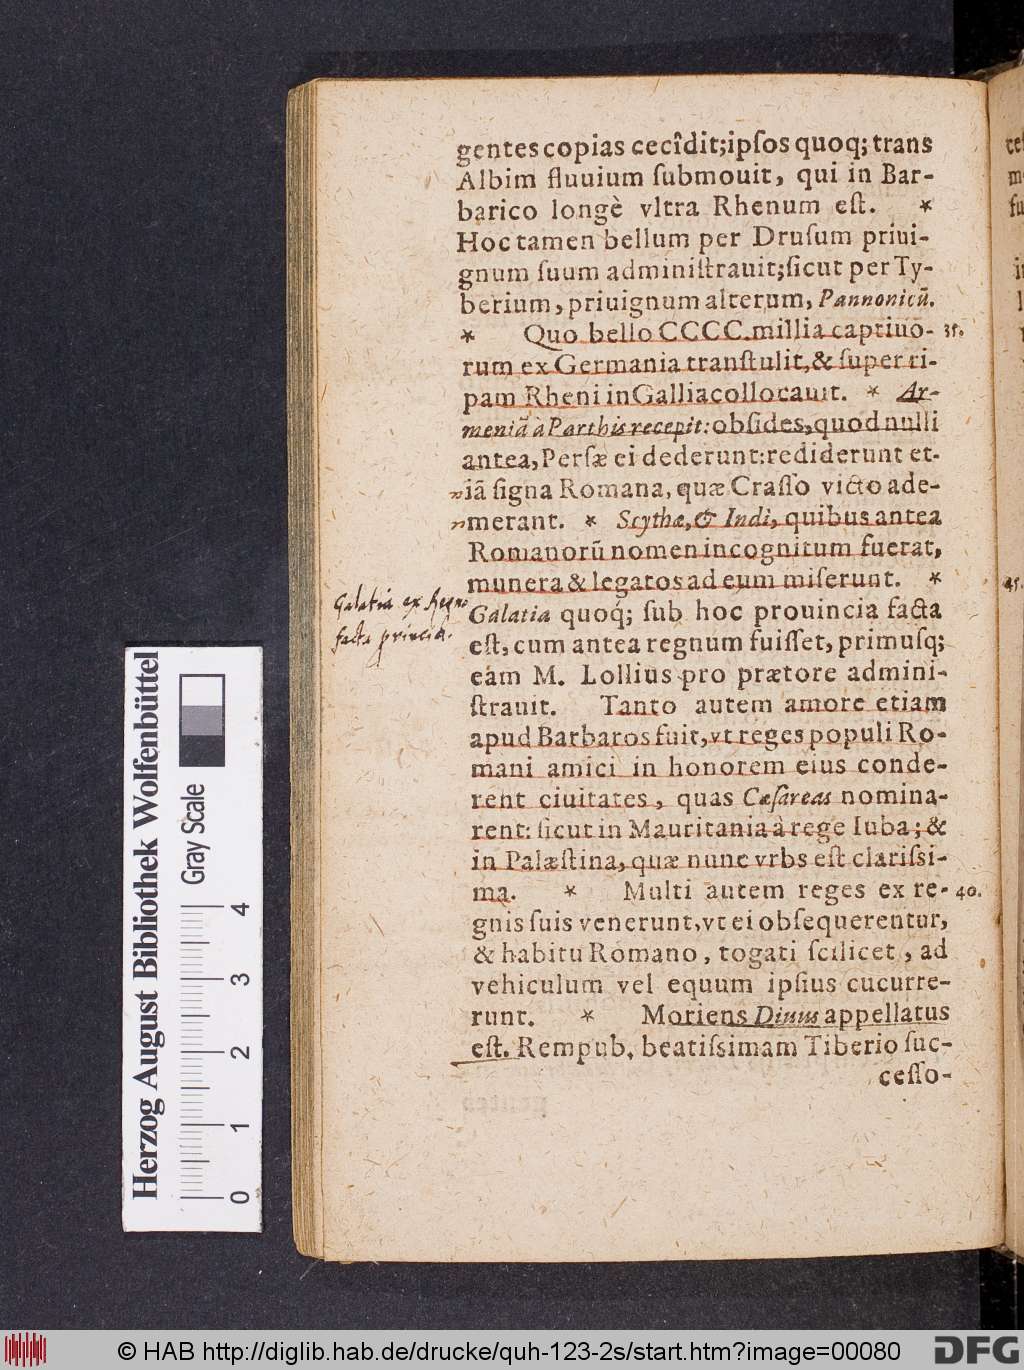 gentes copias cecîdit;ipſos quoq; trans
Albim fluuium ſubmouit, qui in Bar-
barico longè vltra Rhenum eſt. *
Hoc tamen bellum per Druſum priui-
gnum ſuum adminiſtrauit;ſicut per Ty-
berium, priuignum alterum, Pannonicũ.
* Quo bello CCCC.millia captiuo- 35.
rum ex Germania tranſtulit,& ſuper ri-
pam Rheni in Gallia collocauit. * Ar-
meniã à Parthis recepit: obſides,quod nulli
antea, Perſæ ei dederunt:rediderunt et-
iã ſigna Romana, quæ Craſſo victo ade-
merant. * Scythæ,& Indi, quibus antea
Romanorũ nomen incognitum fuerat,
munera & legatos ad eum miſerunt. *
Galatia ex Regno
facta princia.
Galatia quoq́; ſub hoc prouincia facta
eſt, cum antea regnum fuiſſet, primuſq;
eam M. Lollius pro prætore admini-
ſtrauit. Tanto autem amore etiam
apud Barbaros fuit,vt reges populi Ro-
mani amici in honorem eius conde-
rent ciuitates, quas Cæſareas nomina-
rent: ſicut in Mauritania à rege Iuba; &
in Palæſtina, quæ nunc vrbs eſt clariſsi-
ma. * Multi autem reges ex re- 40.
gnis ſuis venerunt,vt ei obſequerentur,
& habitu Romano, togati ſcilicet, ad
vehiculum vel equum ipſius cucurre-
runt. * Moriens Diuus appellatus
eſt. Rempub. beatiſsimam Tiberio ſuc-
ceſſo-
45.
Herzog August Bibliothek Wolfenbüttel
Gray Scale
0 1 2 3 4
© HAB http://diglib.hab.de/drucke/quh-123-2s/start.htm?image=00080
DFG